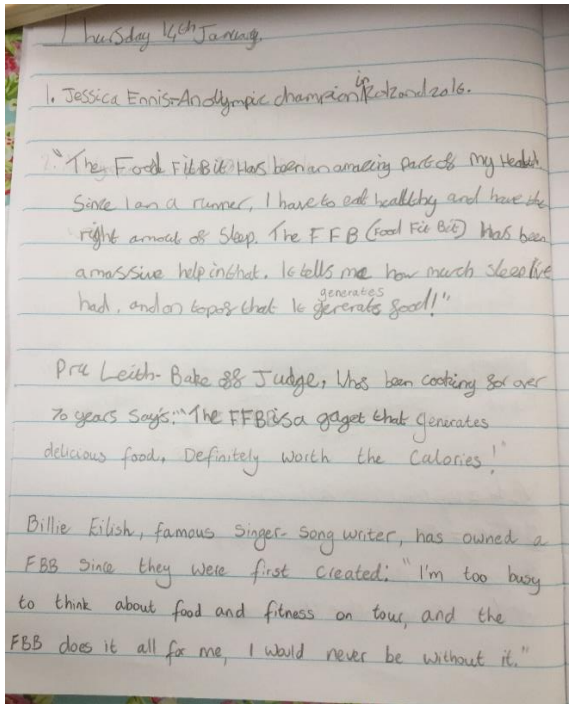 Thursday 14th January.
1. Jessica Ennis-An olympic champion in 2012 and 2016.
"The Food Fit Bit Has been an amazing part of my Health.
Since I am a runner, I have to eat healthy and have the
right amout of Sleep. The F F B (Food Fit Bit) has been
a massive help in that. It tells me how much sleep I've
had, and on top of that it generates food!"
generates
Pru Leith- Bake off Judge, Whos been cooking for over
70 years Say's: "The FFB is a gaget that generates
delicious food, Definitely worth the Calories!"
Billie Eilish, famous Singer-Song writer, has owned a
FBB Since they were first created: "I'm too busy
to think about food and fitness on tour, and the
FBB does it all for me, I would never be without it."